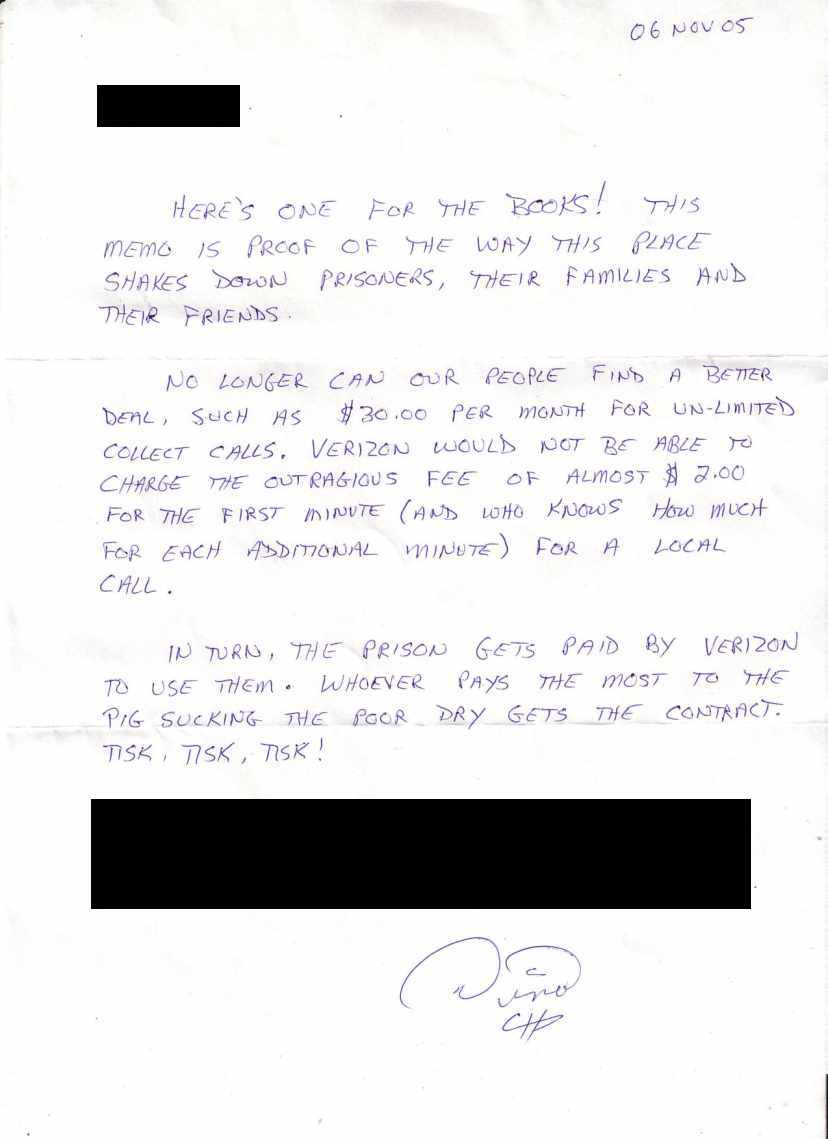 06 NOV 05
HERE'S ONE FOR THE BOOKS! THIS
MEMO IS PROOF OF THE WAY THIS PLACE
SHAKES DOWN PRISONERS, THEIR FAMILIES AND
THEIR FRIENDS.
NO LONGER CAN OUR PEOPLE FIND A BETTER
DEAL, SUCH AS $30.00 PER MONTH FOR UN-LIMITED
COLLECT CALLS. VERIZON WOULD NOT BE ABLE TO
CHARGE THE OUTRAGIOUS FEE OF ALMOST $2.00
FOR THE FIRST MINUTE (AND WHO KNOWS HOW MUCH
FOR EACH ADDITIONAL MINUTE) FOR A LOCAL
CALL.
IN TURN, THE PRISON GETS PAID BY VERIZON
TO USE THEM. WHOEVER PAYS THE MOST TO THE
PIG SUCKING THE POOR DRY GETS THE CONTRACT.
TISK, TISK, TISK!